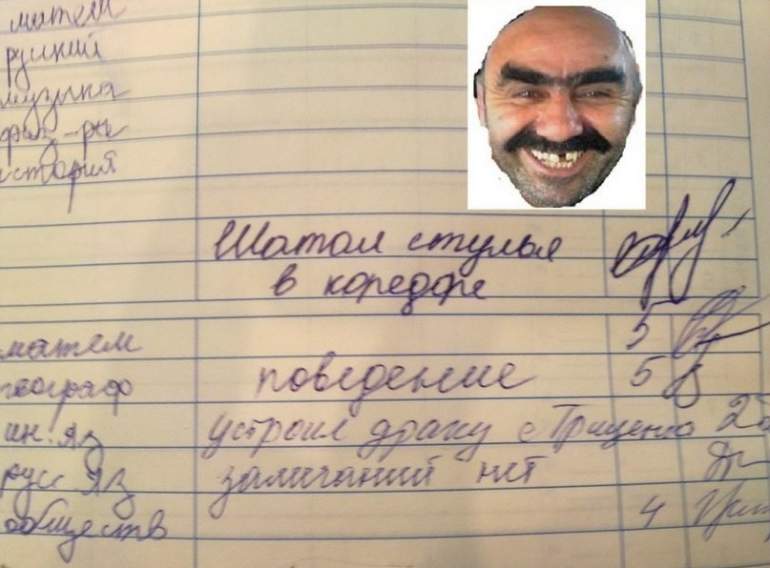 матем
руский
музыка
физ-ра
история
Шатал стулья
в коредоре
матем 5
географ поведение 5
ин. яз устроил драку с Гриценко 2
русс яз замичаний нет
обществ 4